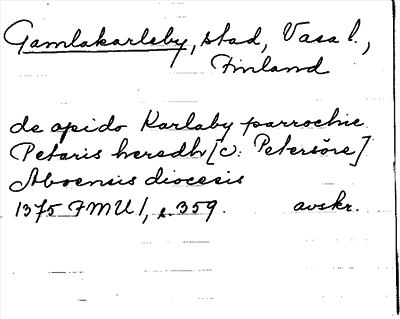 Gamlakarleby, stad, Vasa l.,
Finland
de opido Karlaby parrochie
Petaris heredh [o: Petersöre]
Aboensis diocesis
1375 FMU 1, s. 359. avskr.